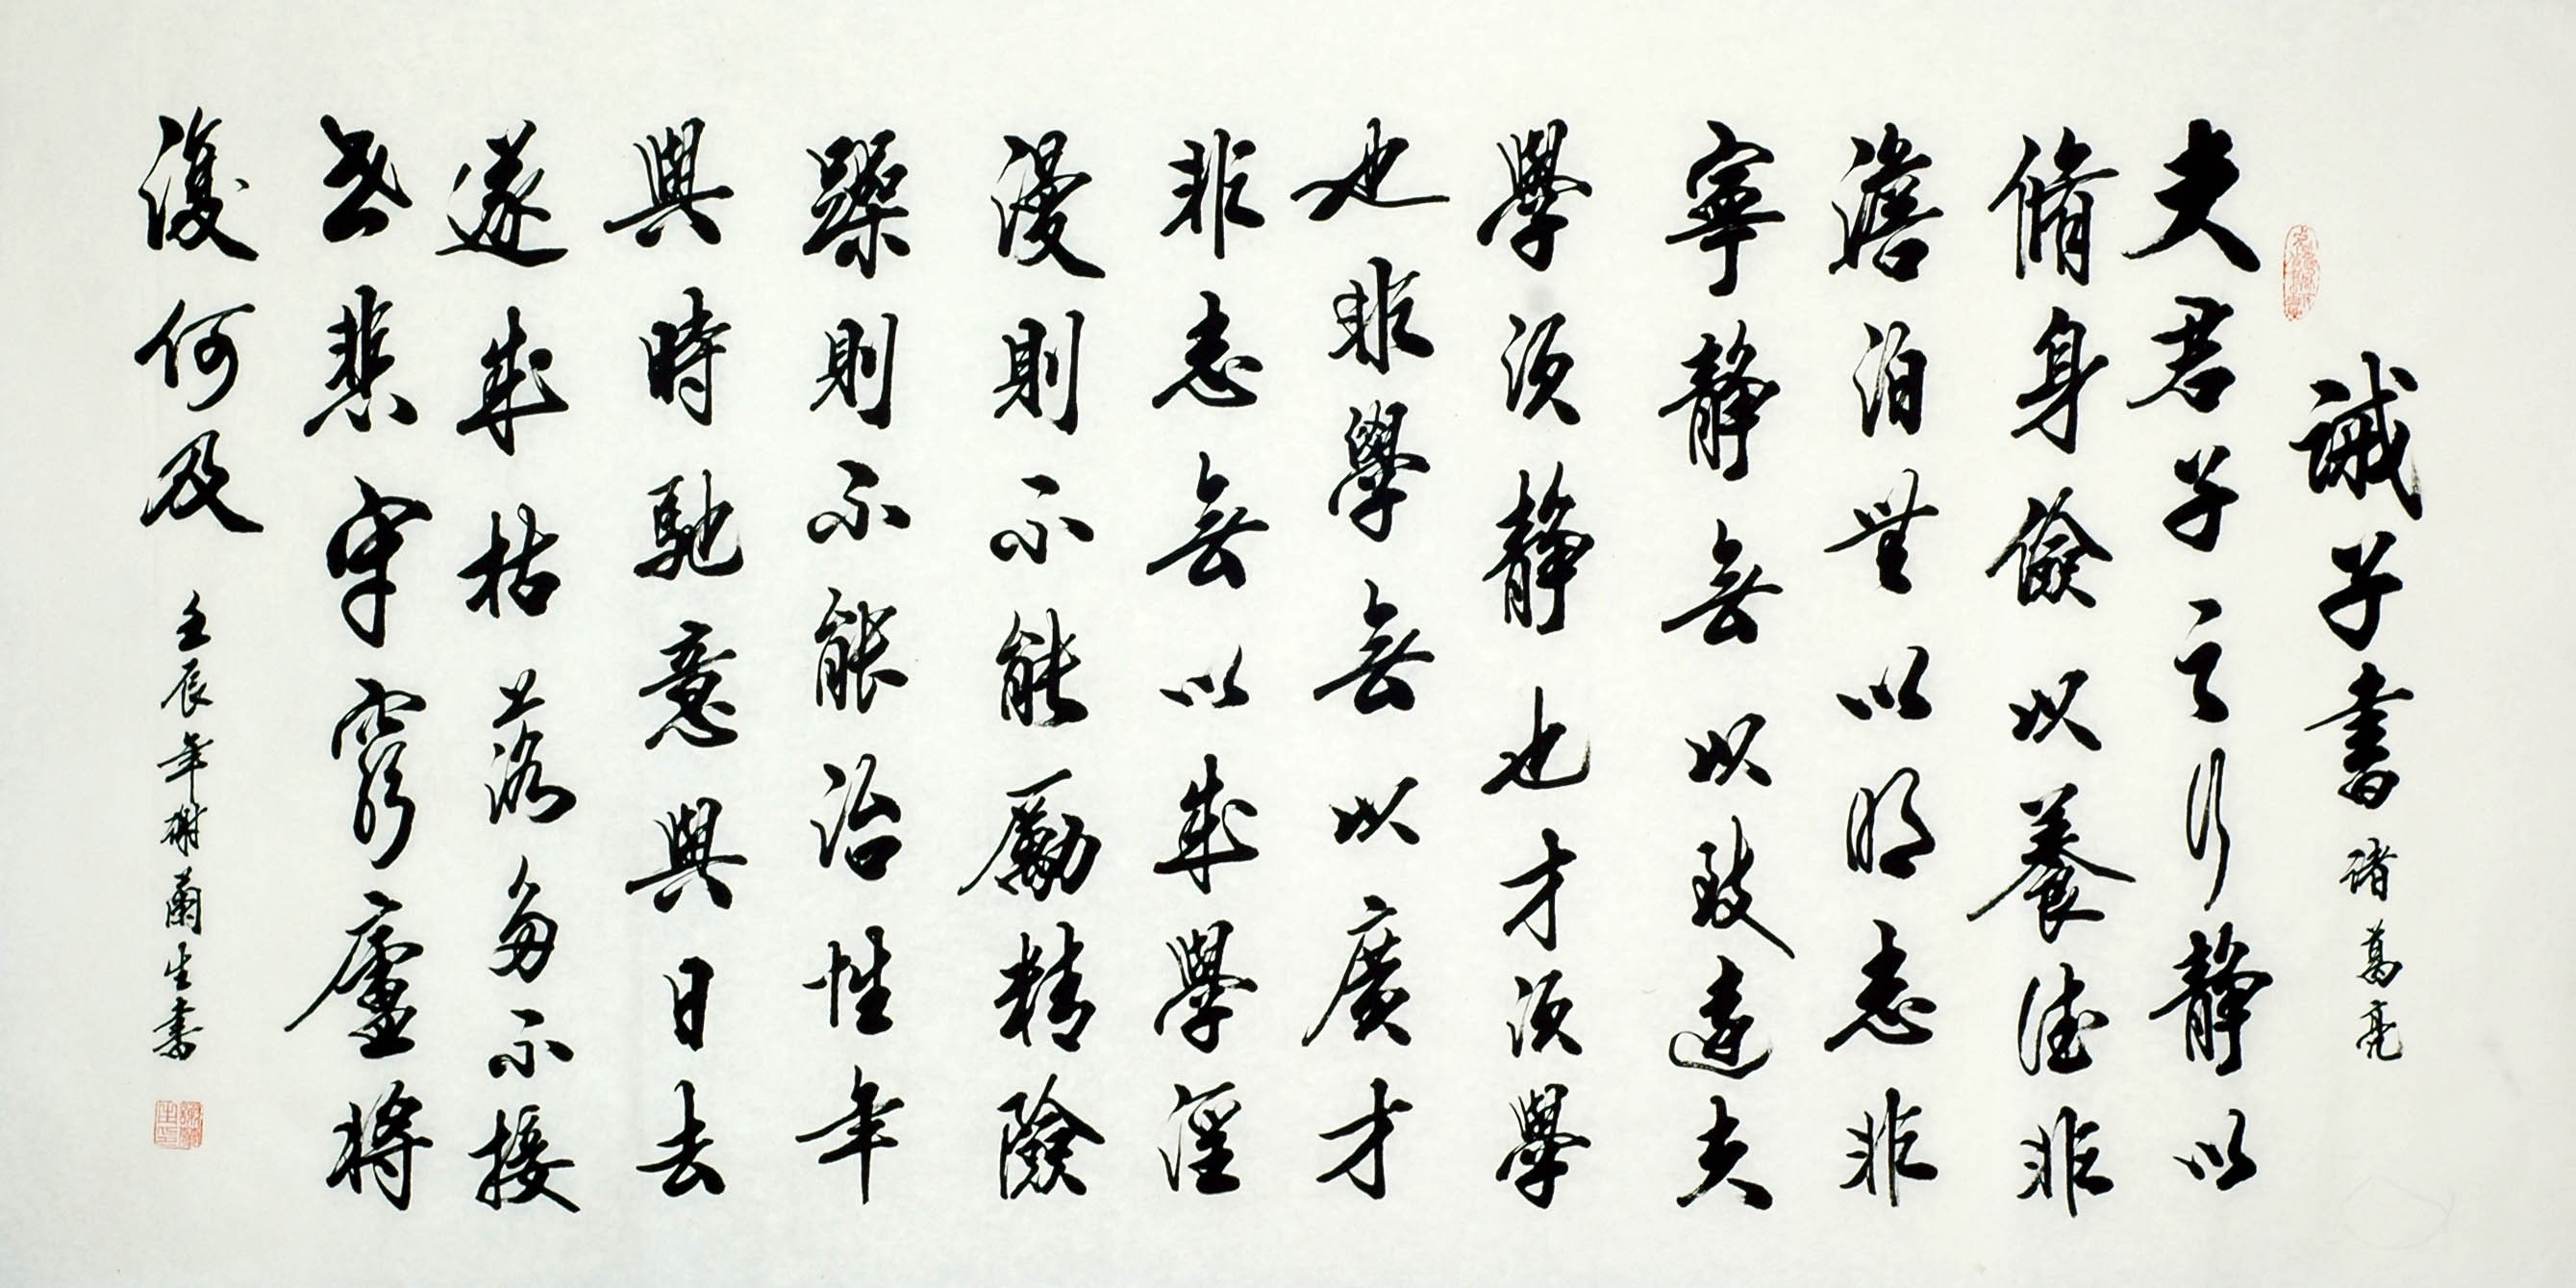 誡子書 諸葛亮
夫君子之行靜以
脩身儉以養德非
澹泊無以明志非
寧靜無以致遠夫
學須靜也才須學
也非學無以廣才
非志無以成學淫
漫則不能勵精險
躁則不能治性年
與時馳意與日去
遂成枯落多不接
世悲守窮廬將
復何及 壬辰年謝蘭生書